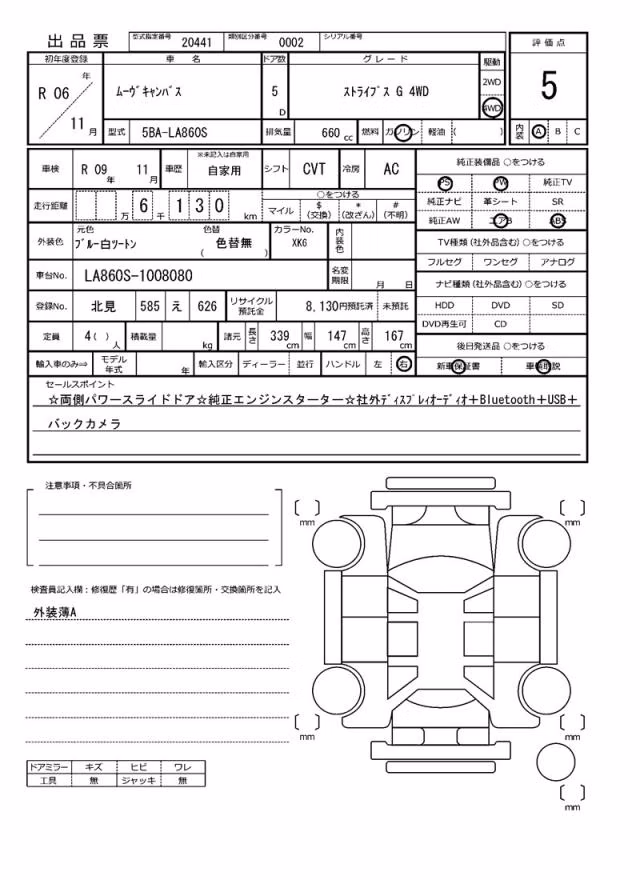 出品票 型式指定番号 20441 類別区分番号 0002 シリアル番号
初年度登録 車名 ドア数 グレード 駆動 評価点
R 06 年 11 月 ムーヴキャンバス 5 D ストライプス G 4WD 2WD 4WD 5
型式 5BA-LA860S 排気量 660 cc 燃料 ガソリン 軽油 ( ) 内装 A B C
車検 R 09 年 11 月 車歴 ※未記入は自家用 自家用 シフト CVT 冷房 AC 純正装備品 ○をつける
PS PW 純正TV
走行距離 万 6 千 1 3 0 km ○をつける 純正ナビ 革シート SR
マイル $ (交換) * (改ざん) # (不明) 純正AW エアB ABS
外装色 元色 ブルー白ツートン 色替 ( 色替無 ) カラーNo. XKG 内装色 TV種類 (社外品含む) ○をつける
フルセグ ワンセグ アナログ
車台No. LA860S-1008080 名変期限 月 日 ナビ種類 (社外品含む) ○をつける
登録No. 北見 585 え 626 リサイクル預託金 8,130円預託済 未預託 HDD DVD SD
DVD再生可 CD
定員 4( ) 人 積載量 kg 諸元 長さ 339 cm 幅 147 cm 高さ 167 cm 後日発送品 ○をつける
輸入車のみ⇒ モデル年式 年 輸入区分 ディーラー 並行 ハンドル 左 右 新車保証書 車輌取説
セールスポイント
☆両側パワースライドドア☆純正エンジンスターター☆社外ディスプレイオーディオ+Bluetooth+USB+
バックカメラ
注意事項・不具合箇所
mm mm
検査員記入欄:修復歴「有」の場合は修復箇所・交換箇所を記入
外装薄A
mm mm
ドアミラー キズ ヒビ ワレ
工具 無 ジャッキ 無
mm